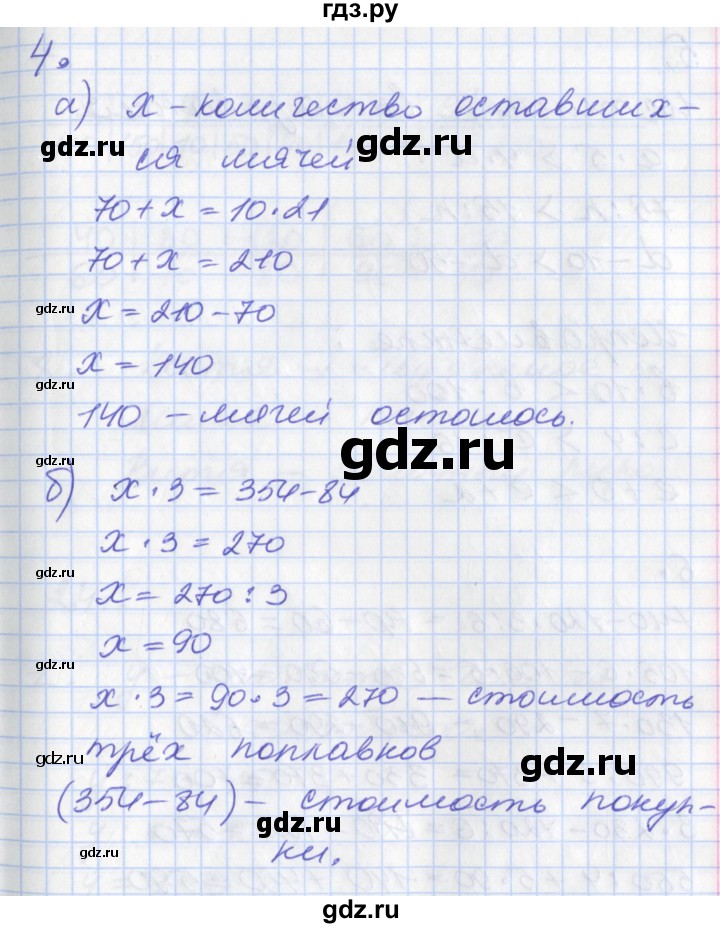 гдз.ру
4.
а) x – количество оставших-
ся мячей
70 + x = 10 · 21
70 + x = 210
x = 210 – 70
x = 140
140 – мячей осталось.
б) x · 3 = 354 – 84
x · 3 = 270
x = 270 : 3
x = 90
x · 3 = 90 · 3 = 270 — стоимость
трёх поплавков
(354 – 84) – стоимость покуп-
ки.
gdz.ru
gdz.ru
gdz.ru
gdz.ru
gdz.ru
gdz.ru
gdz.ru
gdz.ru
gdz.ru
gdz.ru
gdz.ru
gdz.ru